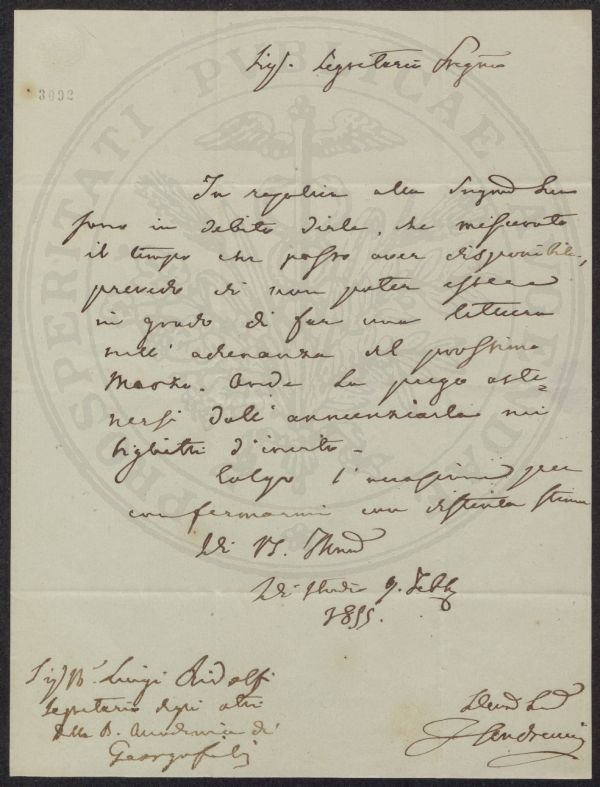 3092
Sig. Segretario Pregmo
In replica alla Pregma Sua
sono in debito dirle, che misurato
il tempo che posso aver disponibile,
prevedo di non poter essere
in grado di far una lettura
nell' adunanza del prossimo
Marzo. Onde La prego aste=
nersi dall' annunziarla nei
biglietti d'invito.
Colgo l'occasione per
confermarmi con distinta stima
Di VS. Illma
Di Studio 9. Febb.
1855.
Sig. Luigi Ridolfi
Segretario degli atti
della R. Accademia dei
Georgofili
PROSPERITATI PUBLICAE AUGENDAE